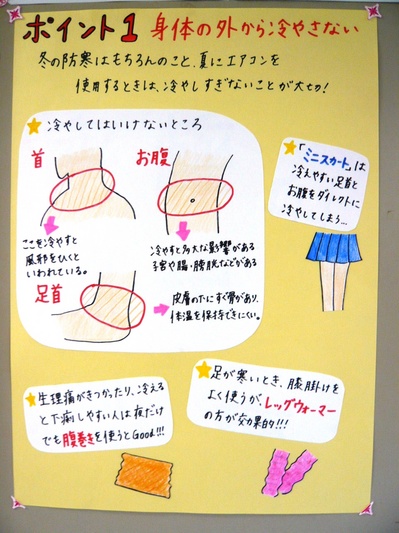 ポイント1 身体の外から冷やさない
冬の防寒はもちろんのこと、夏にエアコンを
使用するときは、冷やしすぎないことが大切！
★冷やしてはいけないところ
首
ここを冷やすと
風邪をひくと
いわれている。
お腹
冷やすと多大な影響がある
子宮や腸、膀胱などがある
足首
皮膚の下にすぐ骨があり、
体温を保持できにくい。
★「ミニスカート」は
冷えやすい足首と
お腹をダイレクトに
冷やしてしまう…
★生理痛がきつかったり、冷える
と下痢しやすい人は夏だけ
でも腹巻きを使うとGood!!!
★足が寒いとき、膝掛けを
よく使うが、レッグウォーマー
の方が効果的!!!